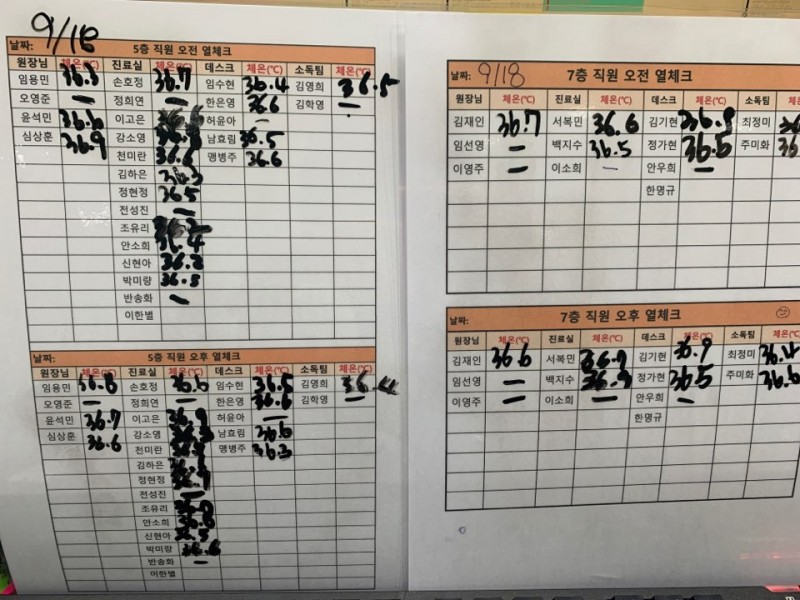 9/18
날짜: 5층 직원 오전 열체크
원장님 체온(℃) 진료실 체온(℃) 데스크 체온(℃) 소독팀 체온(℃)
임용민 36.3 손호정 36.7 임수현 36.4 김영희 36.5
오영준 — 정희연 — 한은영 36.6 김학영 —
윤석민 36.6 이고은 허윤아 —
심상훈 36.9 강소영 남효림 36.5
천미란 36.6 맹병주 36.6
김하은 36.3
정현정 36.5
전성진 —
조유리
안소희 36.4
신현아 36.2
박미량 36.5
반송화 —
이한별
날짜: 5층 직원 오후 열체크
원장님 체온(℃) 진료실 체온(℃) 데스크 체온(℃) 소독팀 체온(℃)
임용민 36.8 손호정 36.6 임수현 36.5 김영희 36.4
오영준 — 정희연 — 한은영 36.6 김학영 —
윤석민 36.7 이고은 36.9 허윤아 —
심상훈 36.6 강소영 남효림 36.6
천미란 맹병주 36.3
김하은
정현정
전성진 —
조유리
안소희
신현아 36.5
박미량 36.6
반송화 —
이한별
날짜: 9/18 7층 직원 오전 열체크
원장님 체온(℃) 진료실 체온(℃) 데스크 체온(℃) 소독팀 체온(℃)
김재인 36.7 서복민 36.6 김기현 36.9 최정미
임선영 — 백지수 36.5 정가현 36.5 주미화
이영주 — 이소희 — 안우희 —
한명규
날짜: 7층 직원 오후 열체크
원장님 체온(℃) 진료실 체온(℃) 데스크 체온(℃) 소독팀 체온(℃)
김재인 36.6 서복민 36.7 김기현 36.9 최정미 36.4
임선영 — 백지수 36.9 정가현 36.5 주미화 36.6
이영주 — 이소희 — 안우희 —
한명규